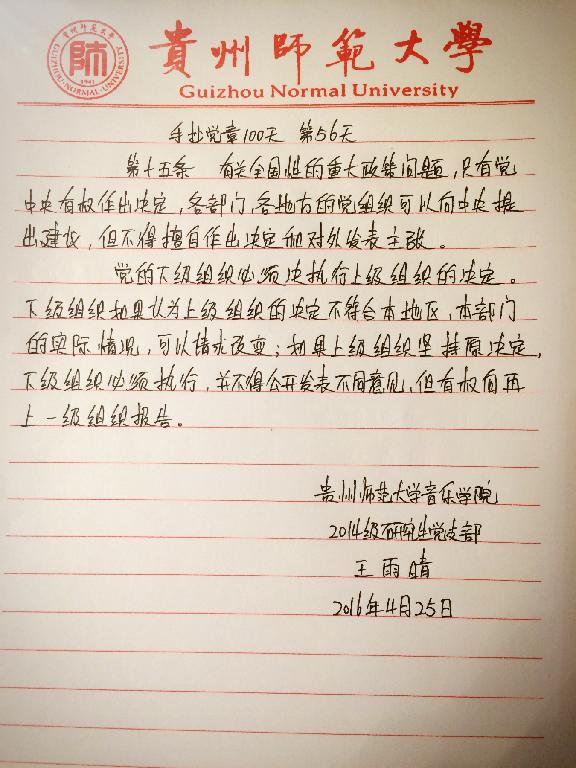 貴州師範大學
Guizhou Normal University
貴州師範大學
師
1941
GUIZHOU·NORMAL·UNIVERSITY
手抄党章100天 第56天
第十五条 有关全国性的重大政策问题，只有党
中央有权作出决定，各部门、各地方的党组织可以向中央提
出建议，但不得擅自作出决定和对外发表主张。
党的下级组织必须决执行上级组织的决定。
下级组织如果认为上级组织的决定不符合本地区、本部门
的实际情况，可以请求改变；如果上级组织坚持原决定，
下级组织必须执行，并不得公开发表不同意见，但有权向再
上一级组织报告。
贵州师范大学音乐学院
2014级研究生党支部
王雨晴
2016年4月25日